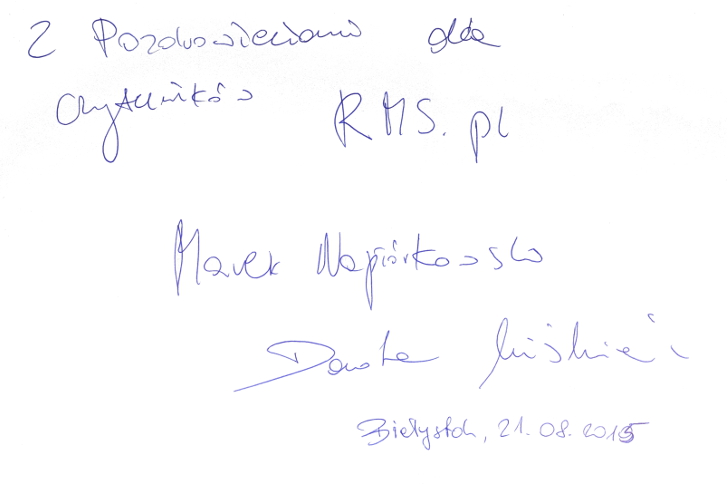 Z Pozdrowieniami dla
Czytelników RMS.pl
Marek Napiórkowski
Dorota Miśkiewicz
Białystok, 21.08.2015